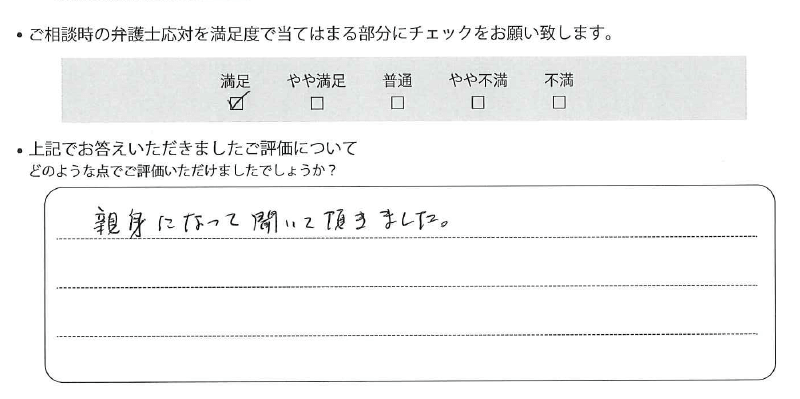 ・ご相談時の弁護士応対を満足度で当てはまる部分にチェックをお願い致します。
満足 やや満足 普通 やや不満 不満
☑ ☐ ☐ ☐ ☐
・上記でお答えいただきましたご評価について
どのような点でご評価いただけましたでしょうか？
親身になって聞いて頂きました。